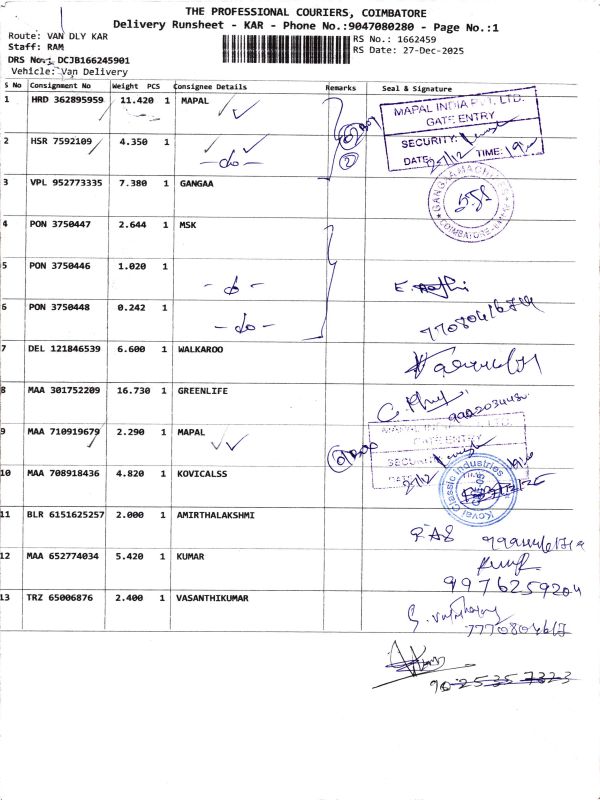 THE PROFESSIONAL COURIERS, COIMBATORE
Delivery Runsheet - KAR - Phone No.:9047080280 - Page No.:1
Route: VAN DLY KAR
RS No.: 1662459
Staff: RAM
RS Date: 27-Dec-2025
DRS No.: DCJB166245901
Vehicle: Van Delivery
S No Consignment No Weight PCS Consignee Details Remarks Seal & Signature
1 HRD 362895959 11.420 1 MAPAL
MAPAL INDIA PVT. LTD.
GATE ENTRY
SECURITY:
DATE: 27/12 TIME:
2 HSR 7592109 4.350 1 -do-
2
3 VPL 952773335 7.380 1 GANGAA
COIMBATORE
4 PON 3750447 2.644 1 MSK
5 PON 3750446 1.020 1 -do-
6 PON 3750448 0.242 1 -do-
7 DEL 121846539 6.600 1 WALKAROO
8 MAA 301752209 16.730 1 GREENLIFE
9 MAA 710919679 2.290 1 MAPAL
MAPAL INDIA PVT. LTD.
GATE ENTRY
27/12
10 MAA 708918436 4.820 1 KOVICALSS
Kovai Classic Industries
11 BLR 6151625257 2.000 1 AMIRTHALAKSHMI
12 MAA 652774034 5.420 1 KUMAR
9976259204
13 TRZ 65006876 2.400 1 VASANTHIKUMAR
90 2535 7323